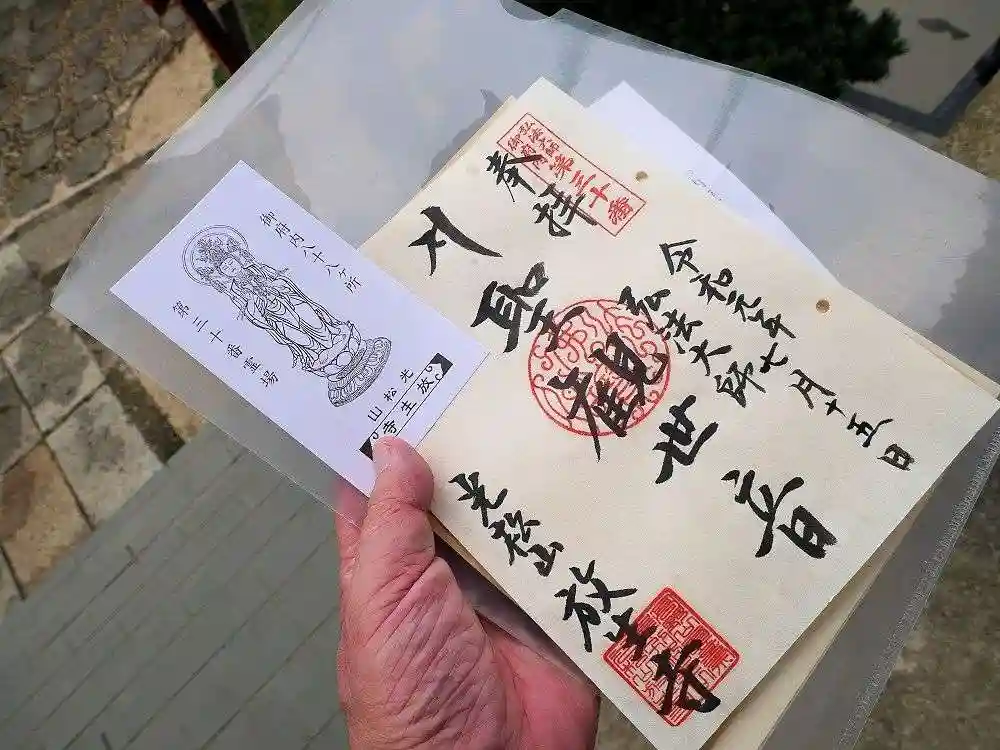 御府内八十八ヶ所
第三十番霊場
光松山
放生寺
弘法大師
御府内
第三十番
奉拝
令和元年七月十五日
弘法大師
聖観世音
光松山 放生寺